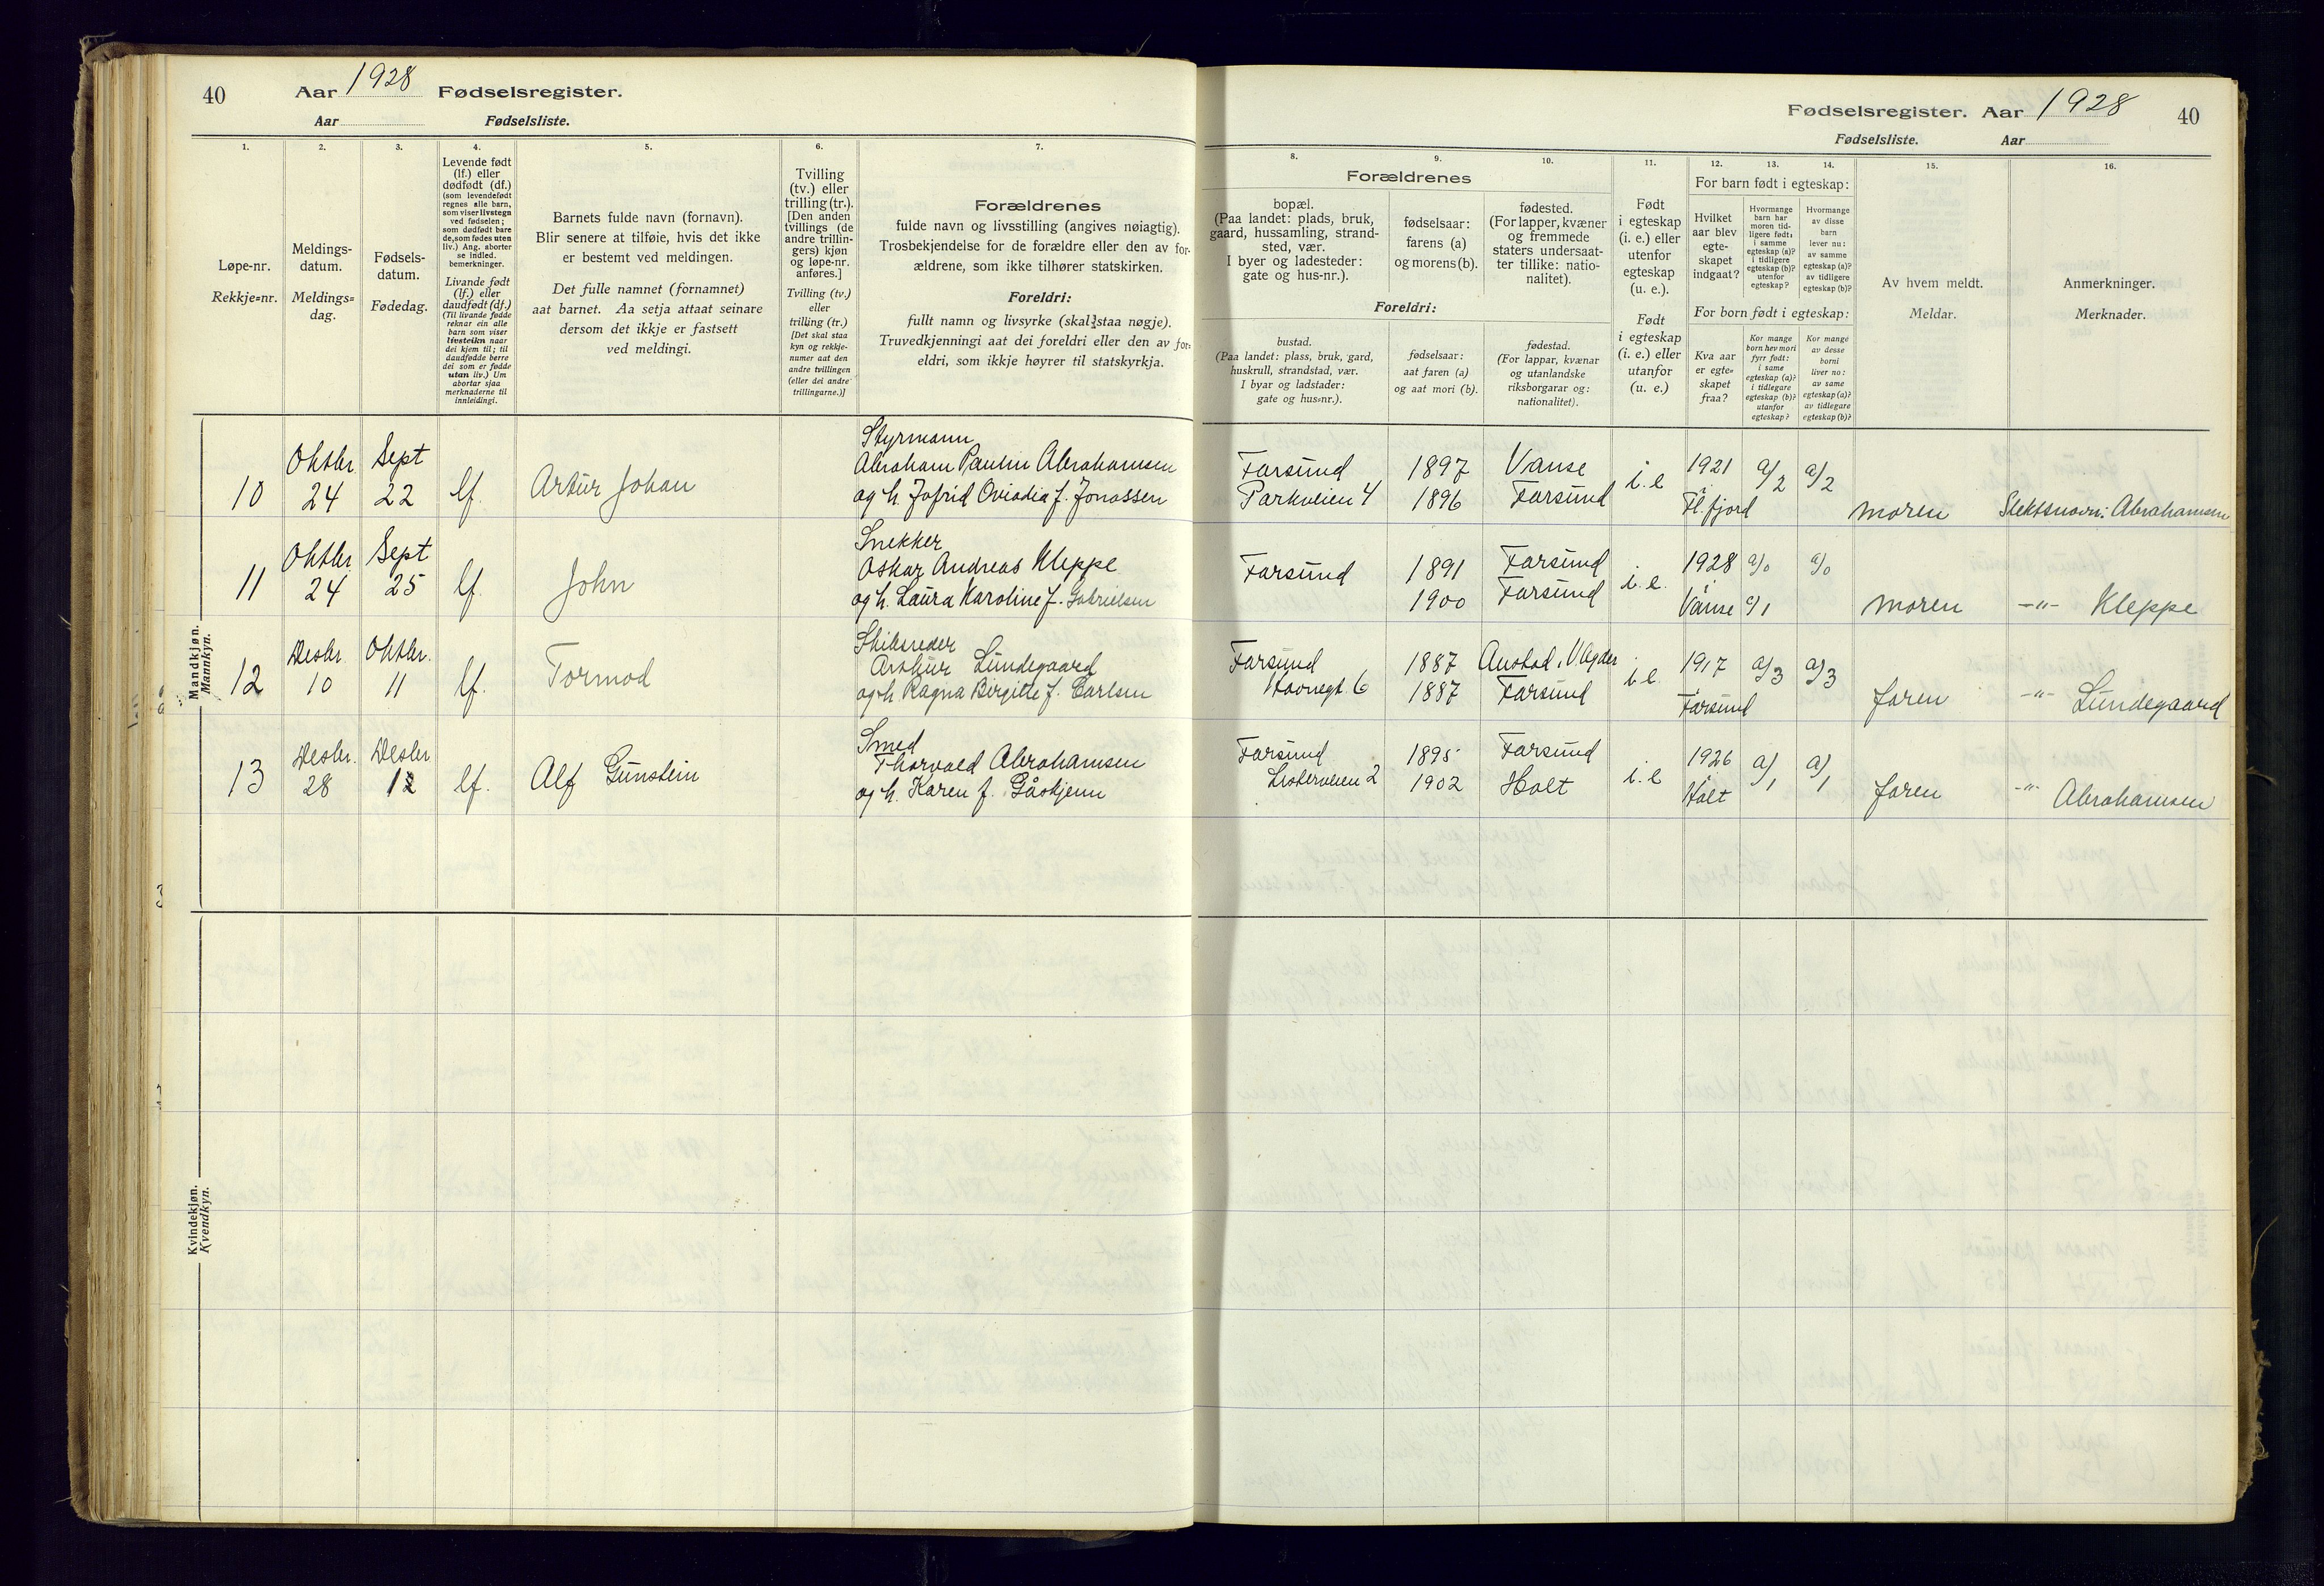 40
Aar 1928 Fødselsregister.
Aar Fødselsliste.
1.
2.
3.
4.
5.
6.
7.
Løpe-nr.
Rekkje=nr.
Meldings-
datum.
Meldings=
dag.
Fødsels-
datum.
Fødedag.
Levende født
(lf.) eller
dødfødt (df.)
(som levendefødt
regnes alle barn,
som viser livstegn
ved fødselen;
som dødfødt bare
de, som fødes uten
liv.) Ang. aborter
se indled.
bemerkninger.
Livande født
(lf.) eller
daudfødt (df.)
(Til livande fødde
reknar ein alle
barn som viser
livsteikn naar
dei kjem til; til
daudfødde berre
dei som er fødde
utan liv.) Um
abortar sjaa
merknaderne til
innleidingi.
Barnets fulde navn (fornavn).
Blir senere at tilføie, hvis det ikke
er bestemt ved meldingen.
Det fulle namnet (fornamnet)
aat barnet. Aa setja attaat seinare
dersom det ikkje er fastsett
ved meldingi.
Tvilling
(tv.) eller
trilling (tr.).
[Den anden
tvillings (de
andre trillin-
gers) kjøn
og løpe-nr.
anføres.]
Tvilling (tv.)
eller
trilling (tr.)
[Det skal staa
kyn og rekkje-
numer aat den
andre tvillingen
(eller dei andre
trillingarne.)]
Forældrenes
fulde navn og livsstilling (angives nøiagtig).
Trosbekjendelse for de forældre eller den av for-
ældrene, som ikke tilhører statskirken.
Foreldri:
fullt namn og livsyrke (skal staa nøgje).
Truvedkjenningi aat dei foreldri eller den av for=
eldri, som ikkje høyrer til statskyrkja.
Mandkjøn.
Mannkyn.
10 Oktbr 24 Sept 22 lf. Artur Johan
Styrmann
Abraham Paulin Abrahamsen
og h. Jofrid Oviadia f. Jonassen
11 Oktbr 24 Sept 25 lf. John
Snekker
Oskar Andreas Kleppe
og h. Laura Karoline f. Gabrielsen
12 Desbr. 10 Oktbr. 11 lf. Tormod
Skibsreder
Arthur Lundegaard
og h. Ragna Birgitte f. Carlsen
13 Desbr. 28 Desbr 12 lf. Alf Gunstein
Smed
Thorvald Abrahamsen
og h. Karen f. Gåskjenn
Kvindekjøn.
Kvendkyn.
Fødselsregister. Aar 1928
40
Fødselsliste. Aar
8.
9.
10.
11.
12.
13.
14.
15.
16.
Forældrenes
bopæl.
(Paa landet: plads, bruk,
gaard, hussamling, strand-
sted, vær.
I byer og ladesteder:
gate og hus-nr.).
fødselsaar:
farens (a)
og morens (b).
fødested.
(For lapper, kvæner
og fremmede
staters undersaat-
ter tillike: natio-
nalitet).
Foreldri:
bustad.
(Paa landet: plass, bruk, gard,
huskrull, strandstad, vær.
I byar og ladstader:
gate og hus=nr.).
fødselsaar:
aat faren (a)
og aat mori (b).
fødestad.
(For lappar, kvænar
og utanlandske
riksborgarar og:
nationalitet).
Født
i egteskap
(i. e.) eller
utenfor
egteskap
(u. e.).
Født
i egteskap
(i. e.) eller
utanfor
(u. e.)
For barn født i egteskap:
Hvilket
aar blev
egte-
skapet
indgaat?
Hvormange
barn har
moren tid-
ligere født:
i samme
egteskap (a)?
i tidligere
egteskap (b)?
utenfor
egteskap?
Hvormange
av disse
barn
lever nu:
av samme
egteskap (a)?
av tidligere
egteskap (b)?
For born født i egteskap:
Kva aar
er egte=
skapet
fraa?
Kor mange
born hev mori
fyrr født:
i same
egteskap (a)?
i tidlegare
egteskap (b)?
utanfor
egteskap?
Kor mange
av desse
borni
liver no:
av same
egteskap (a)?
av tidlegare
egteskap (b)?
Av hvem meldt.
Meldar.
Anmerkninger.
Merknader.
Farsund 1897 Vanse i. e 1921 a/2 a/2
Parkveien 4 1896 Farsund Fl. fjord moren Slektsnavn: Abrahamsen
Farsund 1891 Farsund i. e. 1928 a/0 a/0
1900 Farsund Vanse c/1 moren –"– Kleppe
Farsund 1887 Austad, V Agder i. e. 1917 a/3 a/3
Havnegt. 6 1887 Farsund Farsund faren –"– Lundegaard
Farsund 1895 Farsund i. e 1926 a/1 a/1
Listerveien 2 1902 Holt Holt faren –"– Abrahamsen